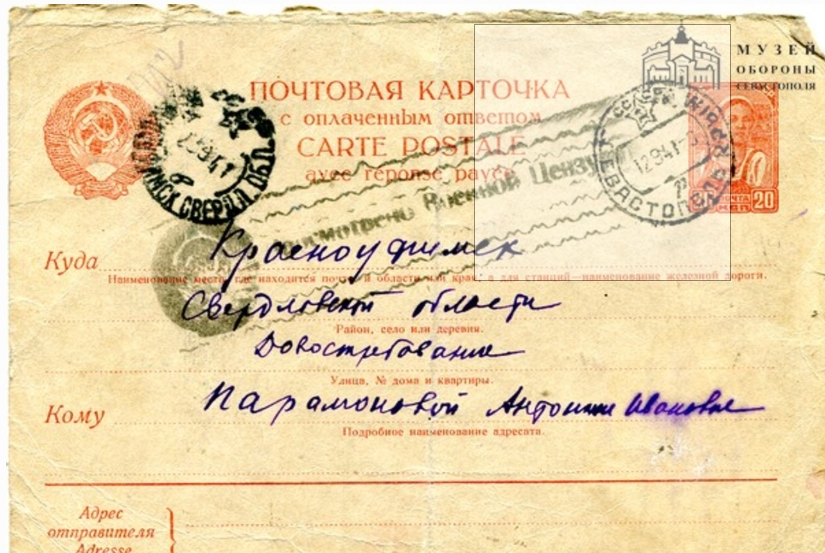 МУЗЕЙ
ОБОРОНЫ
СЕВАСТОПОЛЯ
ПОЧТОВАЯ КАРТОЧКА
с оплаченным ответом
CARTE POSTALE
avec réponse payée
12 9 41
СЕВАСТОПОЛЬ
ПОЧТА
20
МСК СВЕРДЛ. ОБЛ.
Просмотрено Военной Цензурой
Куда Красноуфимск
Наименование места, где находится почта, и области или края, а для станций—наименование железной дороги.
Свердловской области
Район, село или деревня.
Довостребование
Улица, № дома и квартиры.
Кому Парамоновой Антонине Ивановне
Подробное наименование адресата.
Адрес
отправителя
Adresse